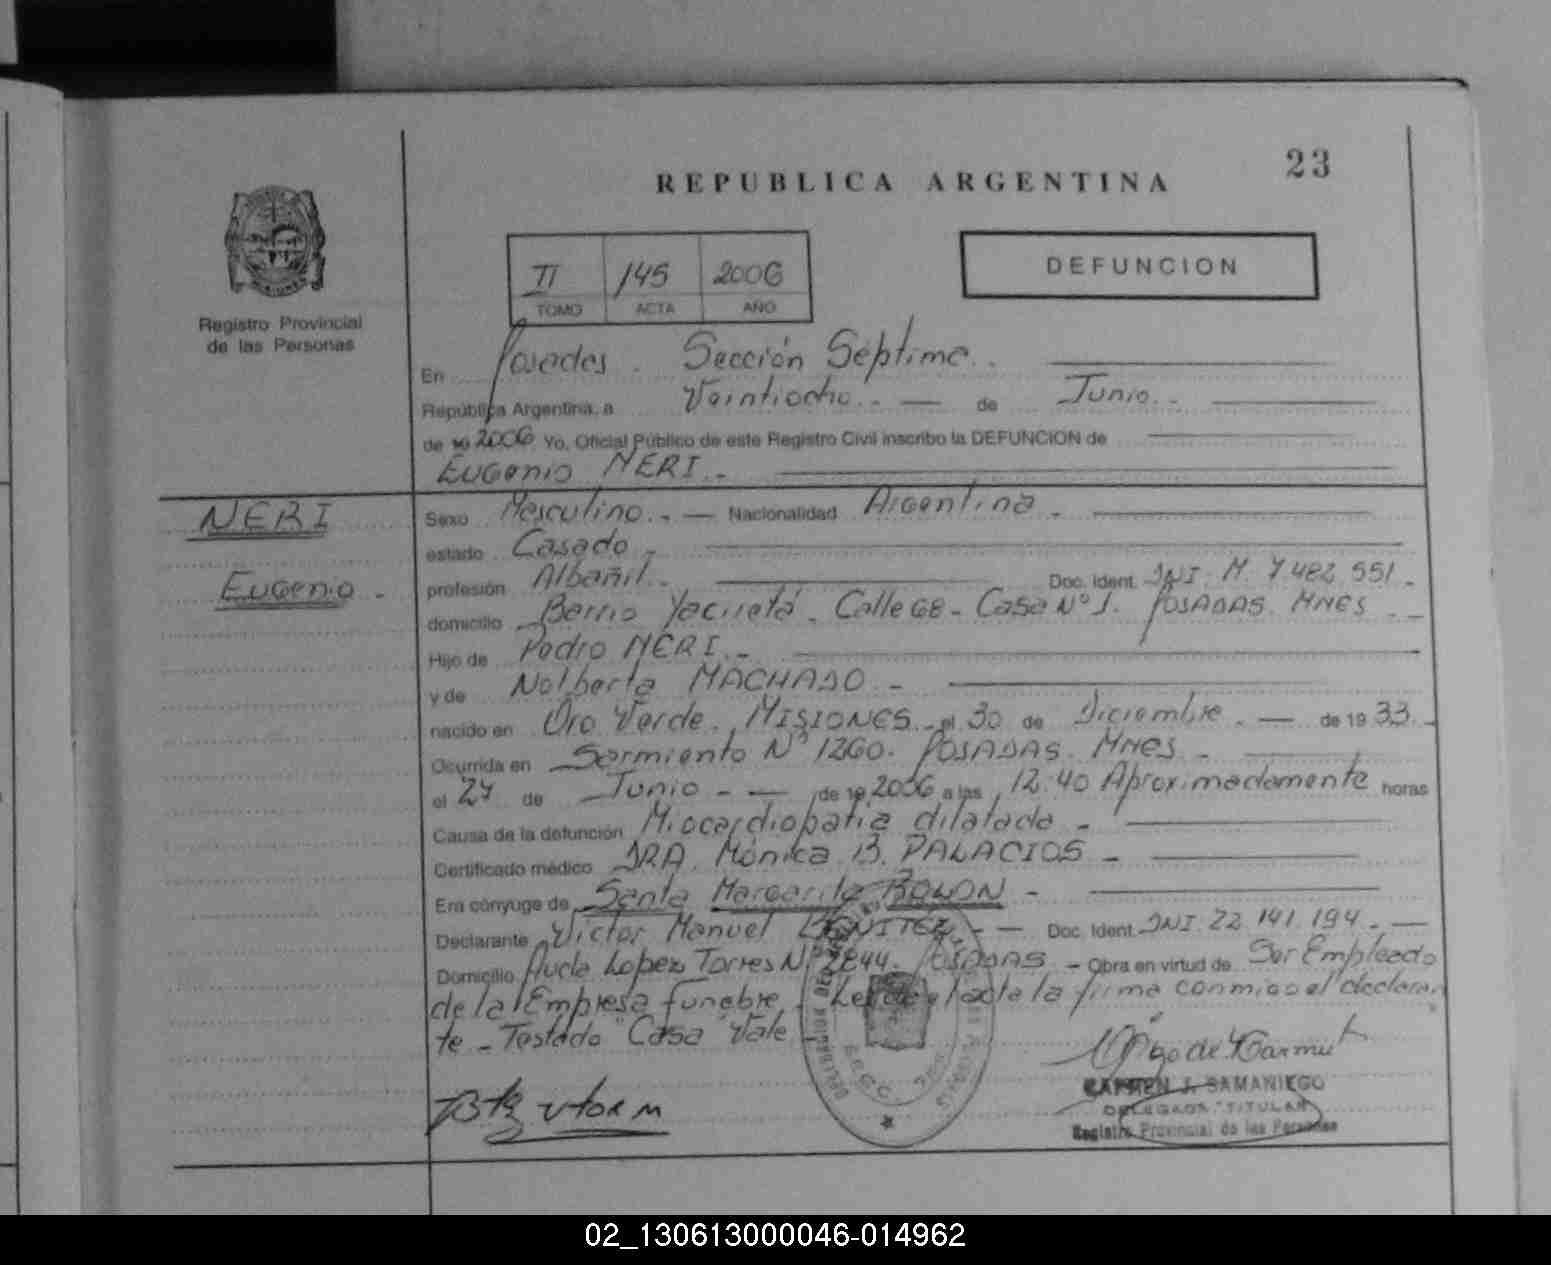 23
REPUBLICA ARGENTINA
II 145 2006
TOMO ACTA AÑO
DEFUNCION
Registro Provincial
de las Personas
En Posadas. Sección Séptima. -
República Argentina, a Veintiocho. - de Junio. -
de 19 2006 Yo, Oficial Público de este Registro Civil inscribo la DEFUNCION de
Eugenio NERI. -
NERI
Eugenio -
Sexo Masculino. - Nacionalidad Argentina -
estado Casado -
profesión Albañil. - Doc. Ident. DNI. M. 7.482.551. -
domicilio Barrio Yacireta. Calle 68 - Casa Nº 1. POSADAS. MNES. -
Hijo de Pedro NERI. -
y de Nolberta MACHADO -
nacido en Oro Verde. MISIONES - el 30 de Diciembre. - de 19 33. -
Ocurrida en Sarmiento Nº 1260. POSADAS. MNES. -
el 27 de Junio - de 19 2006 a las 12:40 Aproximadamente horas
Causa de la defunción Miocardiopatia dilatada -
Certificado médico DRA. Mónica B. PALACIOS -
Era cónyuge de Santa Margarita ROLON -
Declarante Victor Manuel BENITEZ - Doc. Ident. DNI. 22.141.194. -
Domicilio Avda Lopez Torres Nº 2844. POSADAS - Obra en virtud de Ser Empleado
de la Empresa funebre. Leida el acta la firma conmigo el declaran
te - Testado "Casa" Vale
CARMEN J. SAMANIEGO
DELEGADA TITULAR
Registro Provincial de las Personas
02_130613000046-014962